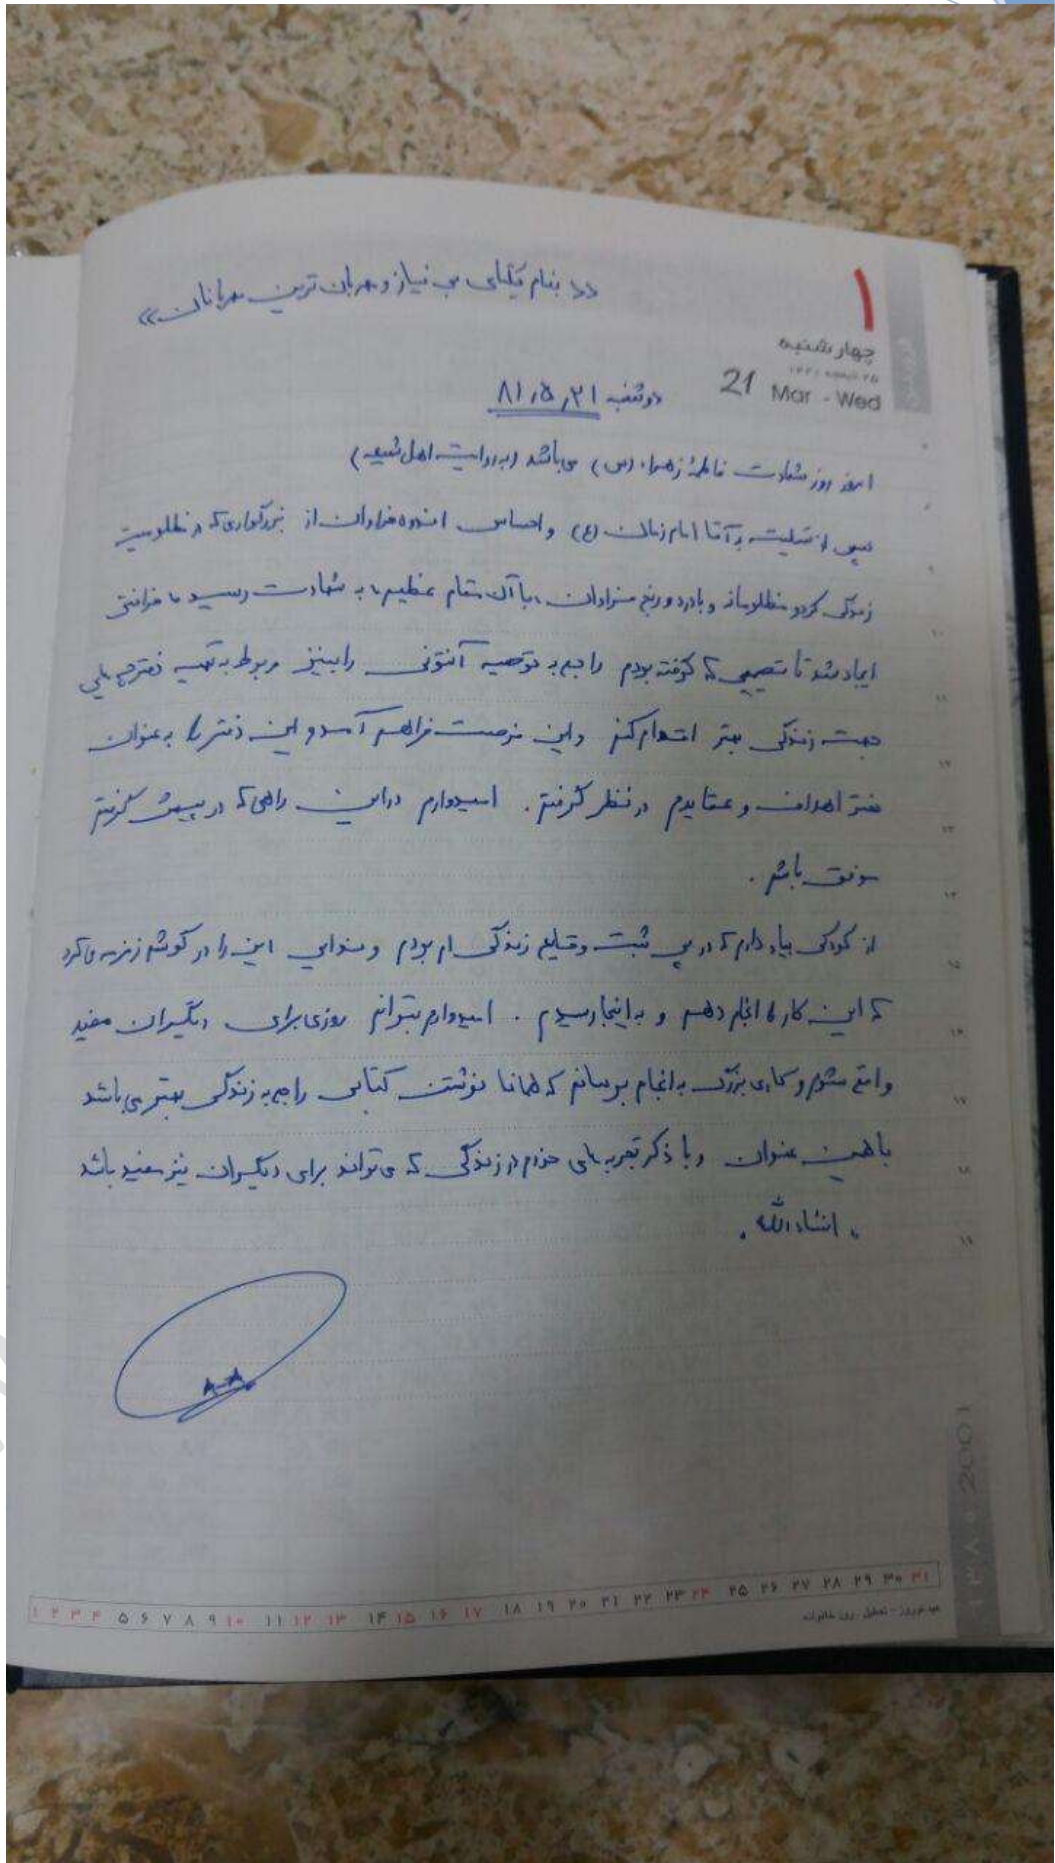 «بنام یکتای بی نیاز و مهربان ترین مهربانان»
۱
چهارشنبه
21 Mar - Wed
دوشنبه ۸۱،۵،۲۱
امروز روز شهادت فاطمهٔ زهراء (س) می باشد (به روایت اهل شیعه)
پس از تسلیت به آقا امام زمان (ع) و احساس اندوه فراوان از بزرگواری که در مظلومیت
زندگی کرد و مظلومانه و با درد و رنج فراوان، با آن مقام عظیم، به شهادت رسید، فراغتی
ایجاد شد تا تصمیمی که گرفته بودم راجع به توصیه آنتونی رابینز مربوط به تهیه دفترچه هایی
جهت زندگی بهتر اقدام کنم و این فرصت فراهم آمد و این دفتر را به عنوان
دفتر اهداف و عقایدم در نظر گرفتم. امیدوارم در این راهی که در پیش گرفتم
موفق باشم.
از کودکی بیاد دارم که در پی ثبت وقایع زندگی ام بودم و ندایی این را در گوشم زمزمه می کرد
که این کار را انجام دهم و به اینجا رسیدم. امیدوارم بتوانم روزی برای دیگران مفید
واقع شوم و کاری بزرگ به انجام برسانم که همانا نوشتن کتابی راجع به زندگی بهتر می باشد
با همین عنوان و با ذکر تجربه های خودم در زندگی که می تواند برای دیگران نیز مفید باشد
. انشاءالله .
A-A
۱۳۸۰ 2001
۱ ۲ ۳ ۴ ۵ ۶ ۷ ۸ ۹ ۱۰ ۱۱ ۱۲ ۱۳ ۱۴ ۱۵ ۱۶ ۱۷ ۱۸ ۱۹ ۲۰ ۲۱ ۲۲ ۲۳ ۲۴ ۲۵ ۲۶ ۲۷ ۲۸ ۲۹ ۳۰ ۳۱
عید نوروز - تعطیل